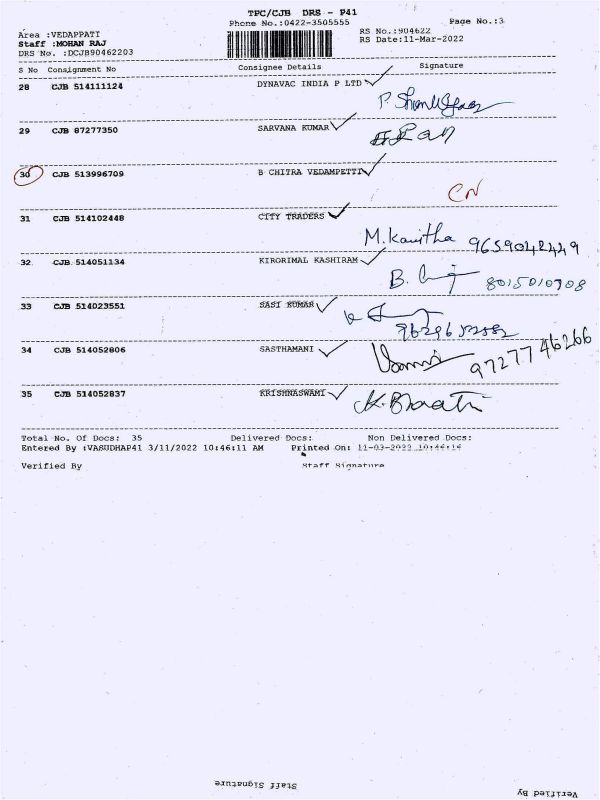 TPC/CJB DRS - P41
Phone No.:0422-3505555 Page No.:3
Area :VEDAPPATI RS No.:904622
Staff :MOHAN RAJ RS Date:11-Mar-2022
DRS No. :DCJB90462203
S No Consignment No Consignee Details Signature
28 CJB 514111124 DYNAVAC INDIA P LTD
29 CJB 87277350 SARVANA KUMAR
30 CJB 513996709 B CHITRA VEDAMPETTI
CN
31 CJB 514102448 CITY TRADERS
M. Kavitha 9659042449
32 CJB 514051134 KIRORIMAL KASHIRAM
B. 8015010908
33 CJB 514023551 SASI KUMAR
34 CJB 514052806 SASTHAMANI
9727746266
35 CJB 514052837 KRISHNASWAMI
K. Bharathi
Total No. Of Docs: 35 Delivered Docs: Non Delivered Docs:
Entered By :VASUDHAP41 3/11/2022 10:46:11 AM Printed On: 11-03-2022 10:46:14
Verified By Staff Signature
Staff Signature
Verified By